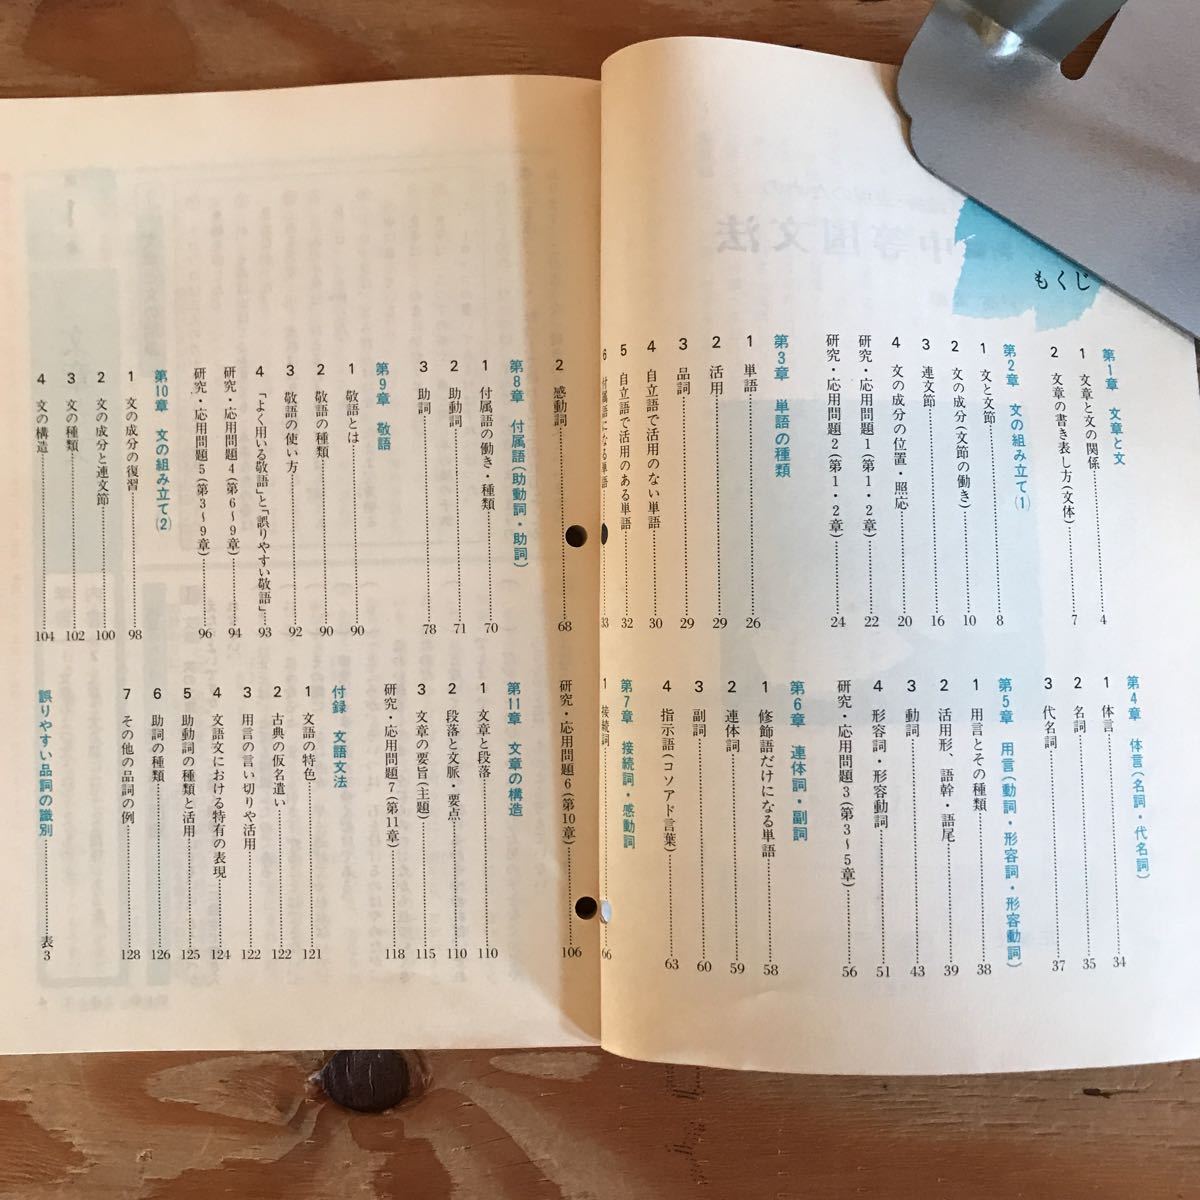 もくじ
第1章 文章と文
1 文章と文の関係 4
2 文章の書き表し方(文体) 7
第2章 文の組み立て(1)
1 文と文節 8
2 文の成分(文節の働き) 10
3 連文節 16
4 文の成分の位置・照応 20
研究・応用問題1(第1・2章) 22
研究・応用問題2(第1・2章) 24
第3章 単語の種類
1 単語 26
2 活用 29
3 品詞 29
4 自立語で活用のない単語 30
5 自立語で活用のある単語 32
6 付属語になる単語 33
第4章 体言(名詞・代名詞)
1 体言 34
2 名詞 35
3 代名詞 37
第5章 用言(動詞・形容詞・形容動詞)
1 用言とその種類 38
2 活用形、語幹・語尾 39
3 動詞 43
4 形容詞・形容動詞 51
研究・応用問題3(第3〜5章) 56
第6章 連体詞・副詞
1 修飾語だけになる単語 58
2 連体詞 59
3 副詞 60
4 指示語(コソアド言葉) 63
第7章 接続詞・感動詞
1 接続詞 66
2 感動詞 68
第8章 付属語(助動詞・助詞)
1 付属語の働き・種類 70
2 助動詞 71
3 助詞 78
第9章 敬語
1 敬語とは 90
2 敬語の種類 90
3 敬語の使い方 92
4 「よく用いる敬語」と「誤りやすい敬語」 93
研究・応用問題4(第6〜9章) 94
研究・応用問題5(第3〜9章) 96
第10章 文の組み立て(2)
1 文の成分の復習 98
2 文の成分と連文節 100
3 文の種類 102
4 文の構造 104
研究・応用問題6(第10章) 106
第11章 文章の構造
1 文章と段落 110
2 段落と文脈・要点 110
3 文章の要旨(主題) 115
研究・応用問題7(第11章) 118
付録 文語文法
1 文語の特色 121
2 古典の仮名遣い 122
3 用言の言い切りや活用 122
4 文語文における特有の表現 124
5 助動詞の種類と活用 125
6 助詞の種類 126
7 その他の品詞の例 128
誤りやすい品詞の識別 表3
中等国文法